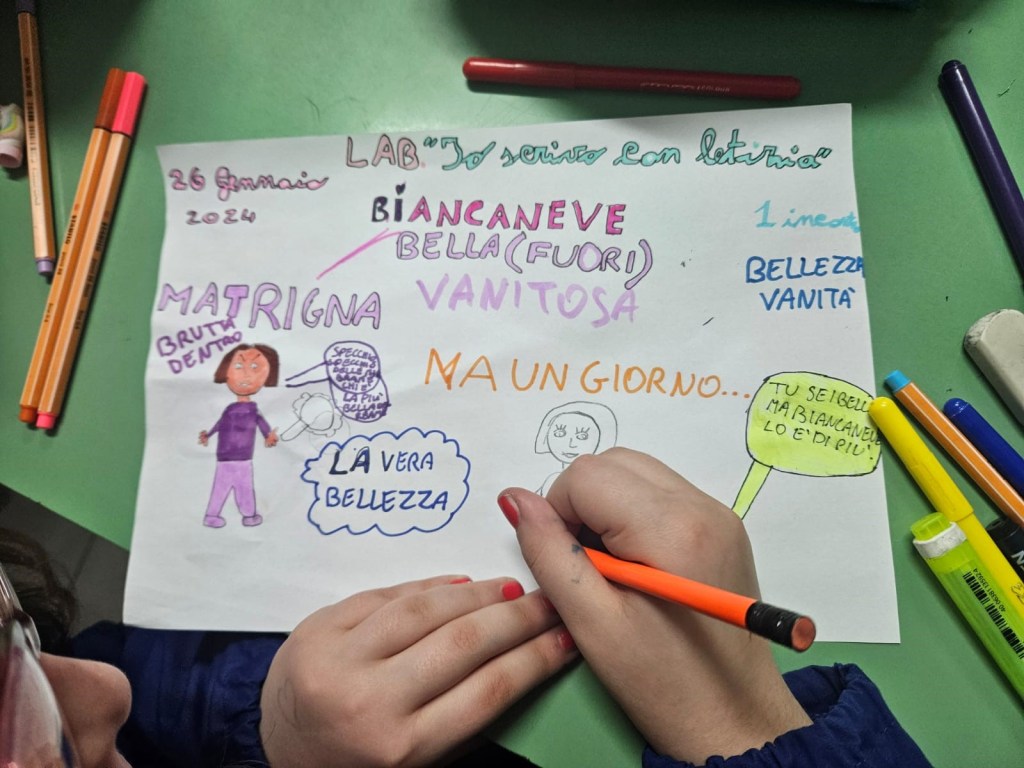 LAB. "Io scrivo con letizia"
26 Gennaio
2024
BIANCANEVE
BELLA (FUORI)
VANITOSA
1 incont
BELLEZZA
VANITÀ
MATRIGNA
BRUTTA
DENTRO
SPECCHIO
SPECCHIO
DELLE MIE
BRAME
CHI È
LA PIÙ
BELLA DEL
REAME
MA UN GIORNO...
TU SEI BELL
MA BIANCANEVE
LO È DI PIÙ.
LA VERA
BELLEZZA